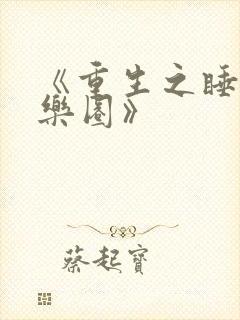 《重生之睡
樂園》
蔡起寶